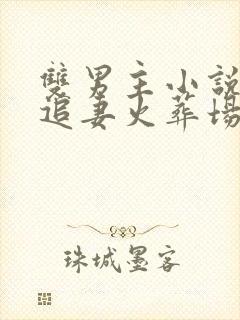 雙男主小說
追妻火葬場
珠城墨客